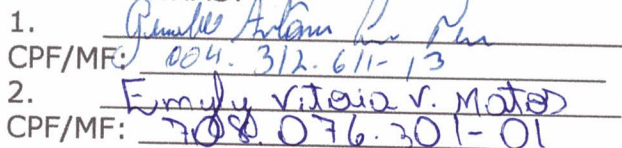 1. Antônio
CPF/MF: 004.312.611-13
2. Emyly Vitoia V. Matos
CPF/MF: 708.076.301-01